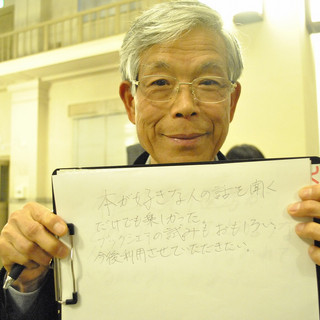 本が好きな人の話を聞く
だけでも楽しかった。
の試みも おもしろい。
今後利用させていただきたい。